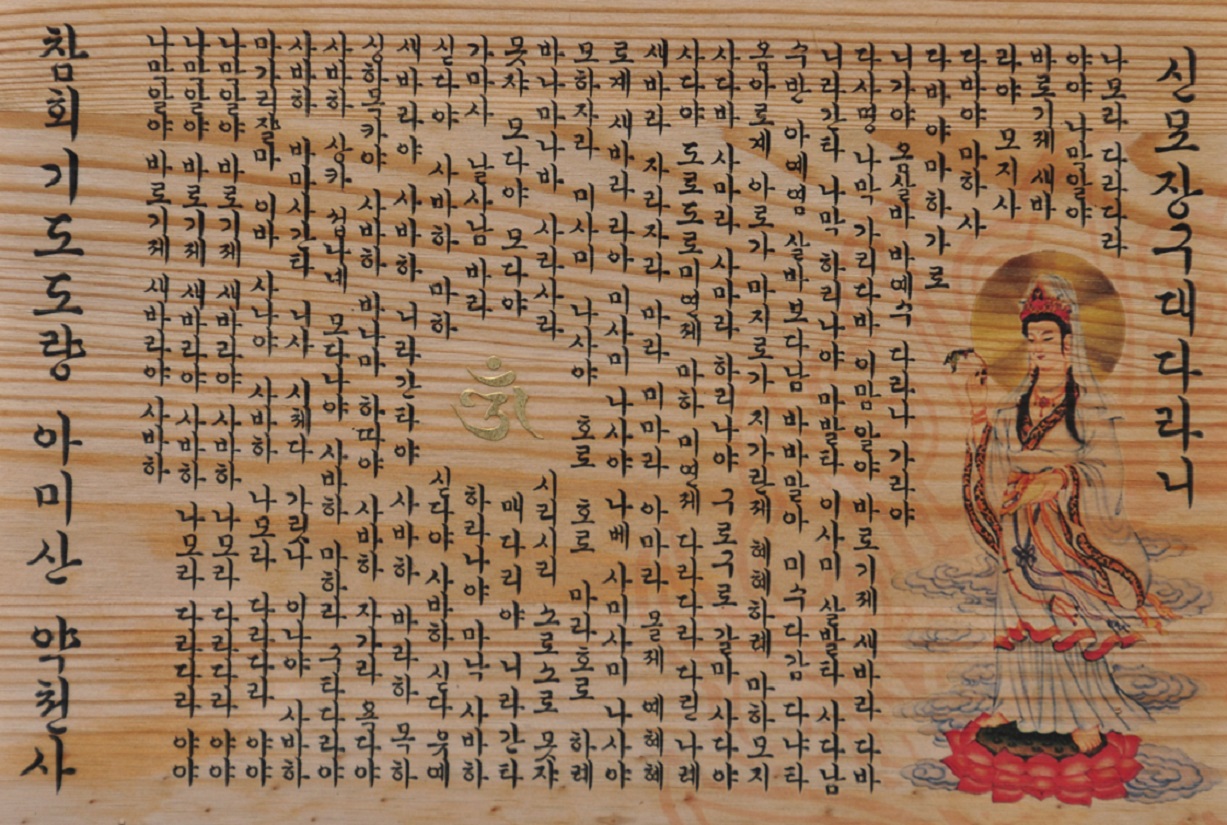 신묘장구대다라니
나모라 다라다라
야야 나막알야
바로기제 새바
라야 모지사
다바야 마하 사
다바야 마하가로
니가야 옴살바 바예수 다라나 가라야
다사명 나막 가리다바 이맘알야 바로기제 새바라 다바
니라간타 나막 하리나야 마발타 이사미 살발타 사다남
수반 아예염 살바 보다남 바바말아 미수다감 다냐타
옴아로계 아로가 마지로가 지가란제 혜혜하례 마하모지
사다바 사마라 사마라 하리나야 구로구로 갈마 사다야
사다야 도로도로 미연제 마하 미연제 다라다라 다린 나례
새바라 자라자라 마라 미마라 아마라 몰제 예혜혜
로계 새바라 라아 미사미 나사야 나베 사미사미 나사야
모하자라 미사미 나사야 호로 호로 마라호로 하례
바나마나바 사라사라 시리시리 소로소로 못쟈
못쟈 모다야 모다야 매다리야 니라간타
가마사 날사남 바라 하라나야 마낙 사바하
싣다야 사바하 마하 싣다야 사바하 싣다 유예
새바라야 사바하 니라간타야 사바하 바라하 목하
싱하목카야 사바하 바나마 하따야 사바하 자가라 욕다야
사바하 상카 섭나네 모다나야 사바하 마하라 구타다라야
사바하 바마사간타 니사 시체다 가릿나 이나야 사바하
마가라잘마 이바 사나야 사바하 나모라 다라다라 야야
나막알야 바로기제 새바라야 사바하 나모라 다라다라 야야
나막알야 바로기제 새바라야 사바하 나모라 다라다라 야야
나막알야 바로기제 새바라야 사바하
참회기도도량 아미산 약천사